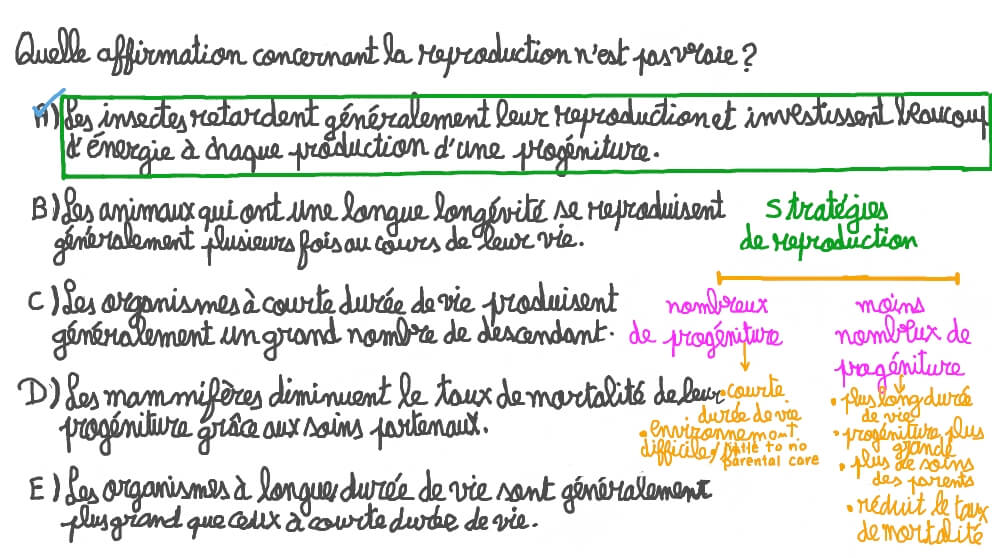 Quelle affirmation concernant la reproduction n'est pas vraie ?
A) Les insectes retardent généralement leur reproduction et investissent beaucoup
d'énergie à chaque production d'une progéniture.
B) Les animaux qui ont une longue longévité se reproduisent
généralement plusieurs fois au cours de leur vie.
C) Les organismes à courte durée de vie produisent
généralement un grand nombre de descendant.
D) Les mammifères diminuent le taux de mortalité de leur
progéniture grâce aux soins partenaux.
E) Les organismes à longue durée de vie sont généralement
plus grand que ceux à courte durée de vie.
Stratégies
de reproduction
nombreux
de progéniture
• courte
durée de vie
• environnement
difficile / little to no
parental care
moins
nombreux de
progéniture
• plus long durée
de vie
• progéniture plus
grande
• plus de soins
des parents
• réduit le taux
de mortalité